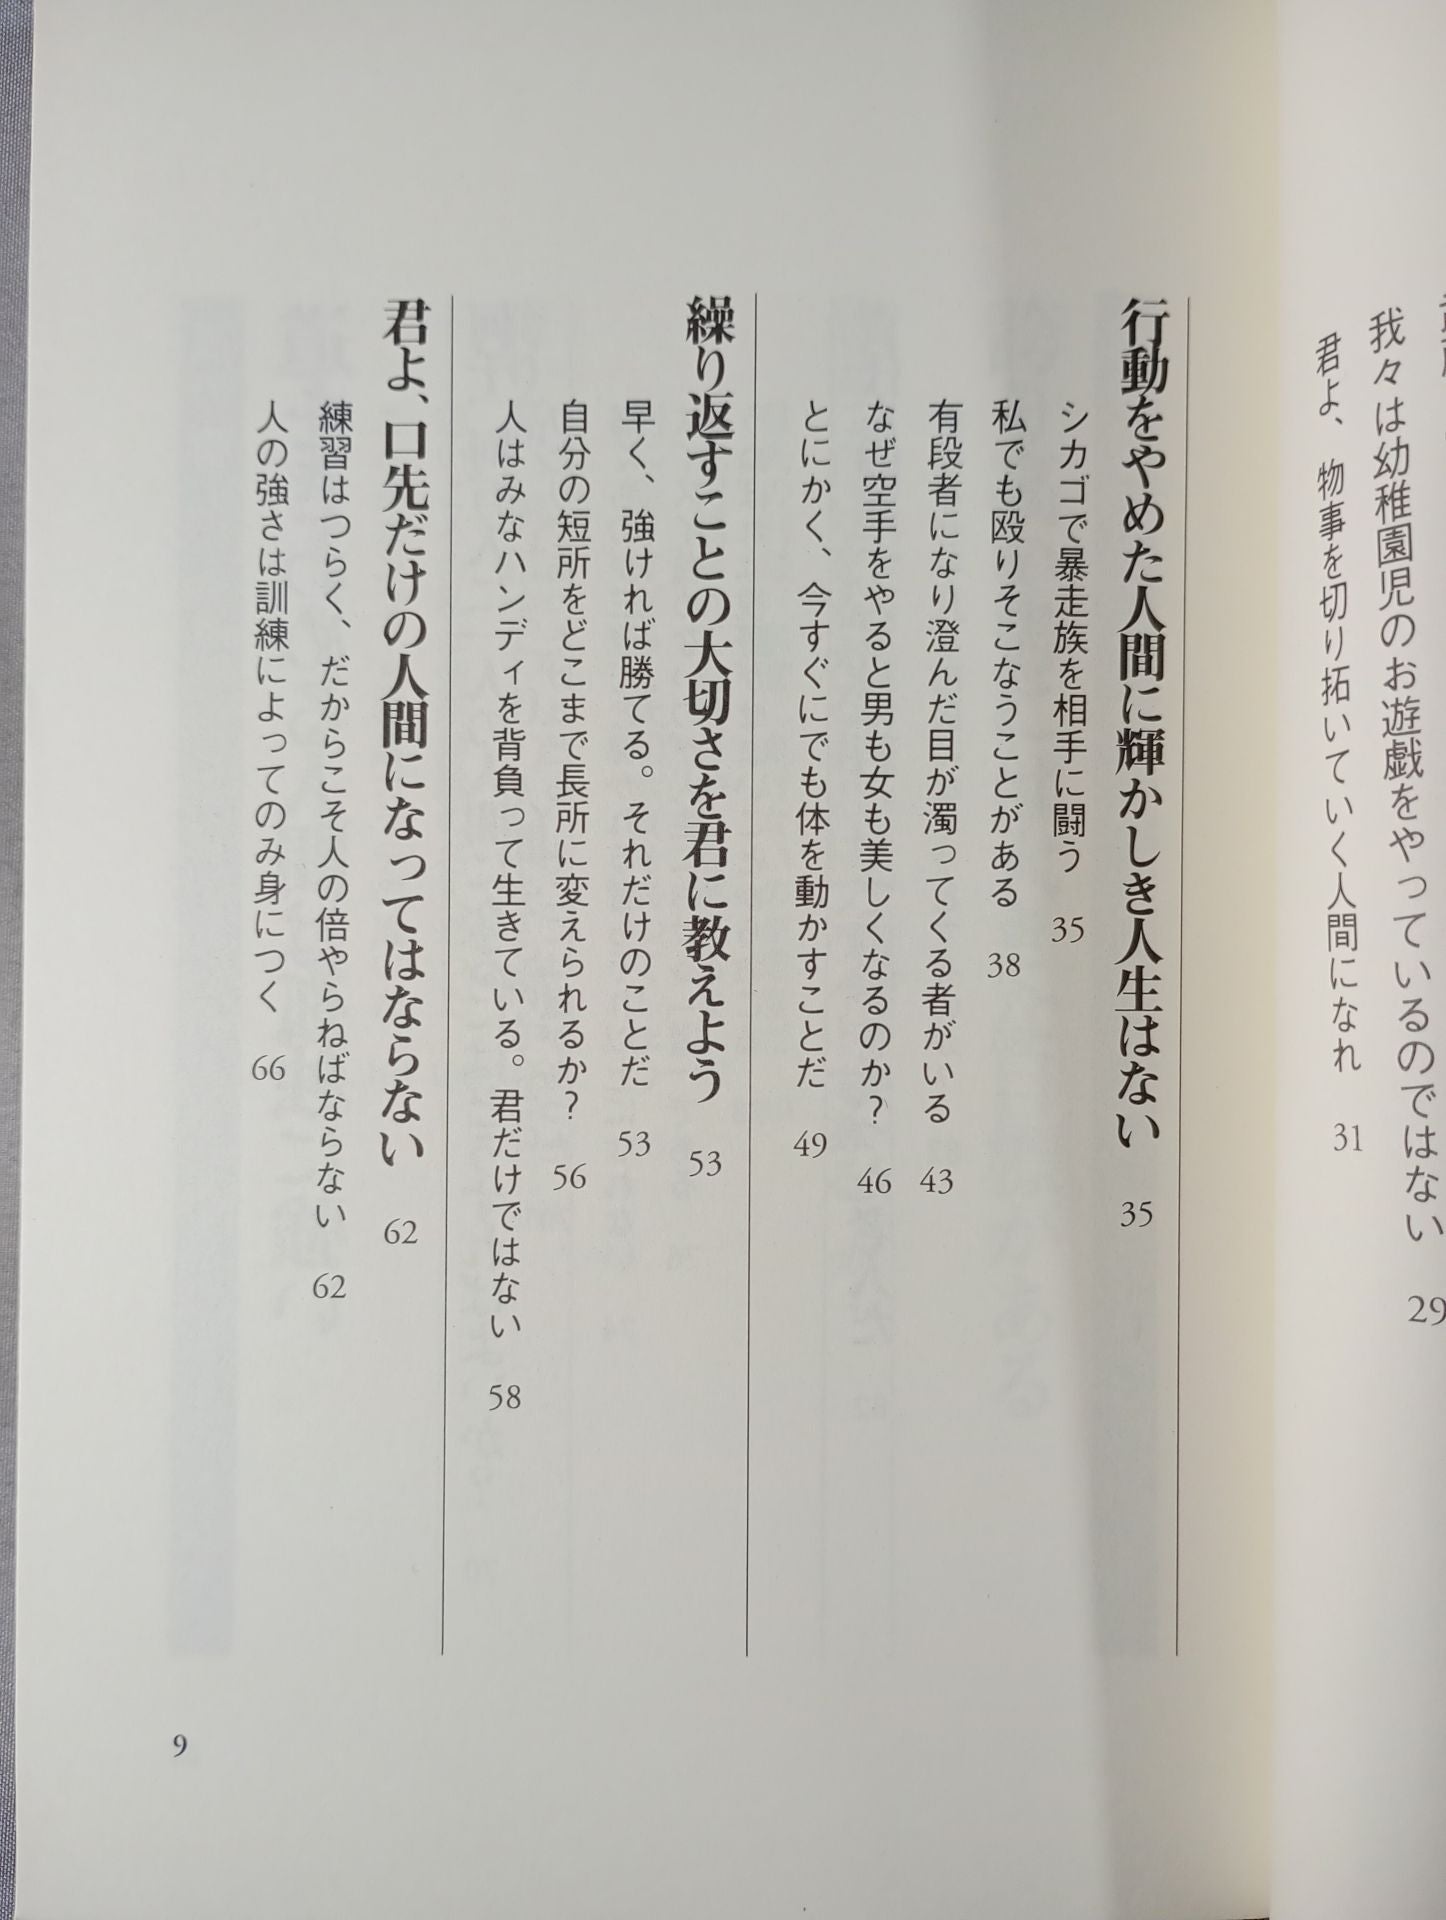 我々は幼稚園児のお遊戯をやっているのではない 29
君よ、物事を切り拓いていく人間になれ 31
行動をやめた人間に輝かしき人生はない 35
シカゴで暴走族を相手に闘う 35
私でも殴りそこなうことがある 38
有段者になり澄んだ目が濁ってくる者がいる 43
なぜ空手をやると男も女も美しくなるのか? 46
とにかく、今すぐにでも体を動かすことだ 49
繰り返すことの大切さを君に教えよう 53
早く、強ければ勝てる。それだけのことだ 53
自分の短所をどこまで長所に変えられるか? 56
人はみなハンディを背負って生きている。君だけではない 58
君よ、口先だけの人間になってはならない 62
練習はつらく、だからこそ人の倍やらねばならない 62
人の強さは訓練によってのみ身につく 66
9